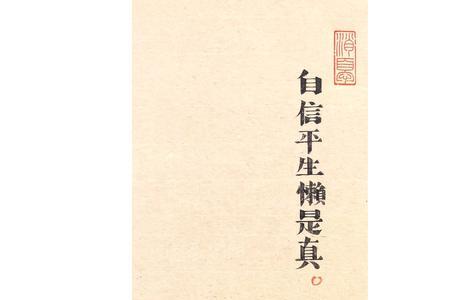 自信平生懒是真